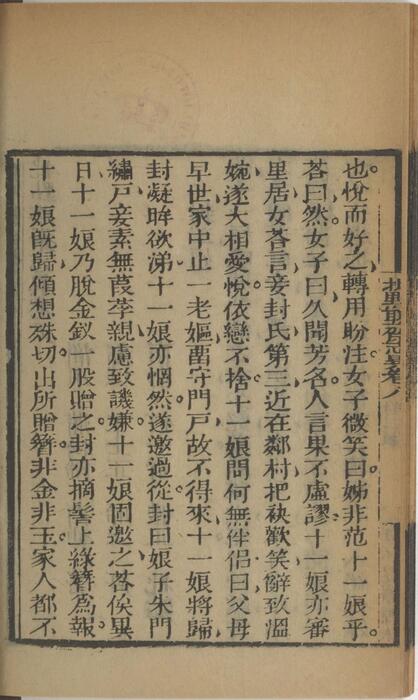 卷八
也悅而好之轉用盼注女子微笑曰姊非范十一娘乎
荅曰然女子曰久聞芳名人言果不虛謬十一娘亦審
里居女荅言妾封氏第三近在鄰村把袂歡笑辭致溫
婉遂大相愛悅依戀不捨十一娘問何無伴侶曰父母
早世家中止一老嫗畱守門戶故不得來十一娘將歸
封凝眸欲涕十一娘亦惘然遂邀過從封曰娘子朱門
繡戶妾素無葭莩親慮致譏嫌十一娘固邀之荅俟異
日十一娘乃脫金釵一股贈之封亦摘髻上綠簪爲報
十一娘旣歸傾想殊切出所贈簪非金非玉家人都不